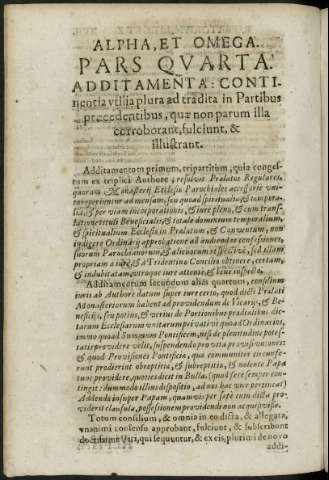 ALPHA, ET OMEGA.
PARS QVARTA.
ADDITAMENTA: CONTI-
nentia vtilia plura ad tradita in Partibus
præcedentibus, quæ non parum illa
corroborant, fulciunt, &
illustrant.
Additamentum primum, tripartitum, quia conges-
tum ex triplici Authore
quorum Monasterij Ecclesiæ Parochiales accessoriè
ad mensam, seu quoad spiritualia, & tempora-
lia, & per viam incorporationis, & iure pleno, & cum trans-
Beneficialis, & totale dominium temporalium,
& spiritualium Ecclesiæ in Prælatum, & Conuentum, non
Ordinarij approbatione ad audiendas confessiones,
suorum Parochianorum, & aliorum respectiuè, sed illam
propriam à iure, & à Tridentino Concilio obtinere, certam,
& indubitatam, vtroque iure attento, & bene inspecto.
Additamentum secundum alias quartum, consilium
iuris ab Authore datum super iure certo, quod dicti Prælati
Monasteriorum habent ad prouidendum de Vicarijs, & Be-
neficijs, seu potius, & verius de Portionibus prædialibus dic-
tarum Ecclesiarum vnitarum priuatiuè quoad Ordinarios,
immo quoad Summum Pontificem, nisi de plenitudine potes-
tatis prouidere velit, suspendendo pro vita prouisiuum
& quod Prouisiones Pontificiæ, quæ communiter in confe-
runt prodierint obreptitiæ, & subreptitiæ, & nolente Papa
prouidere, quoties dicit in Bulla (quod ferè semper con-
tingit: dummodo illius dispositio, ad nos hac vice pertineat)
Addendo insuper Papam, quamuis per sæpe cum dicta pro-
uiderit clausula, possessionem prouidendi non acquisiuisse.
Totum consilium, & omnia in eo dicta, & allegata,
vnanimi consensu approbant, fulciunt, & subscribunt
doctissimi Viri, qui sequuntur, & ex eis, plurimi de nouo
addi-